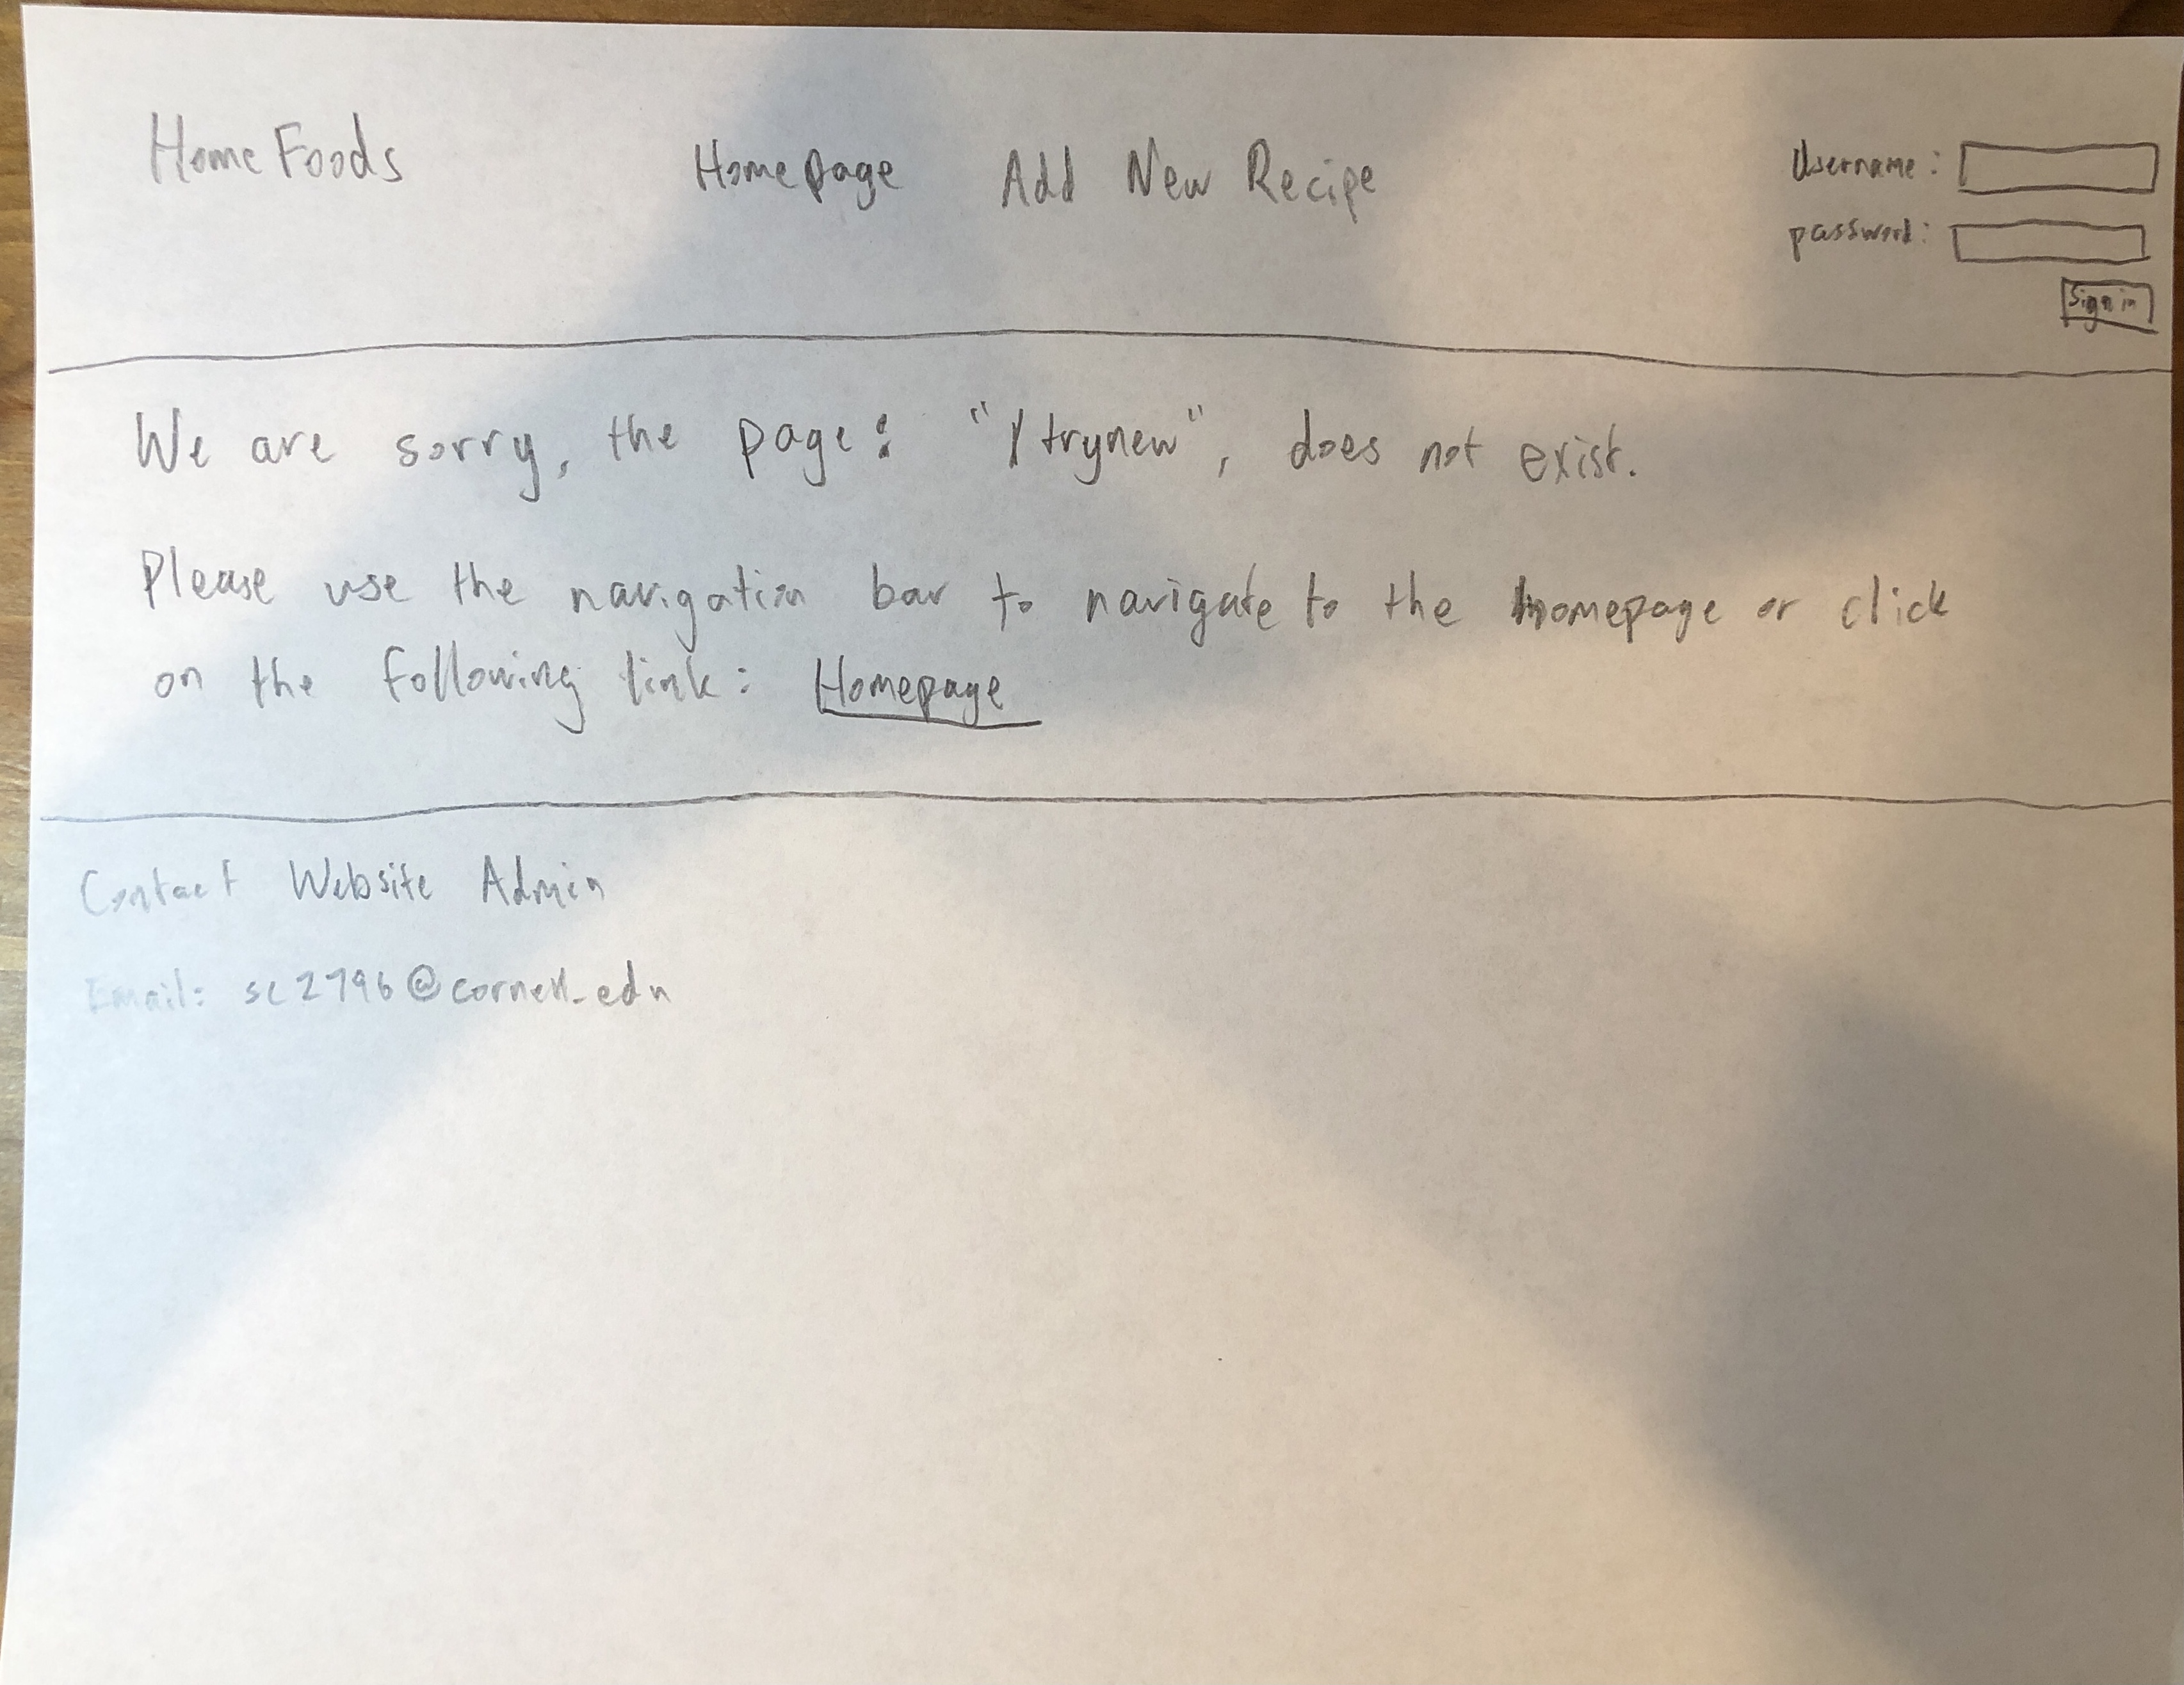 Home Foods Homepage Add New Recipe Username:
password:
Sign in
We are sorry, the page: "/trynew", does not exist.
Please use the navigation bar to navigate to the homepage or click
on the following link: Homepage
Contact Website Admin
Email: sc2796@cornell.edu